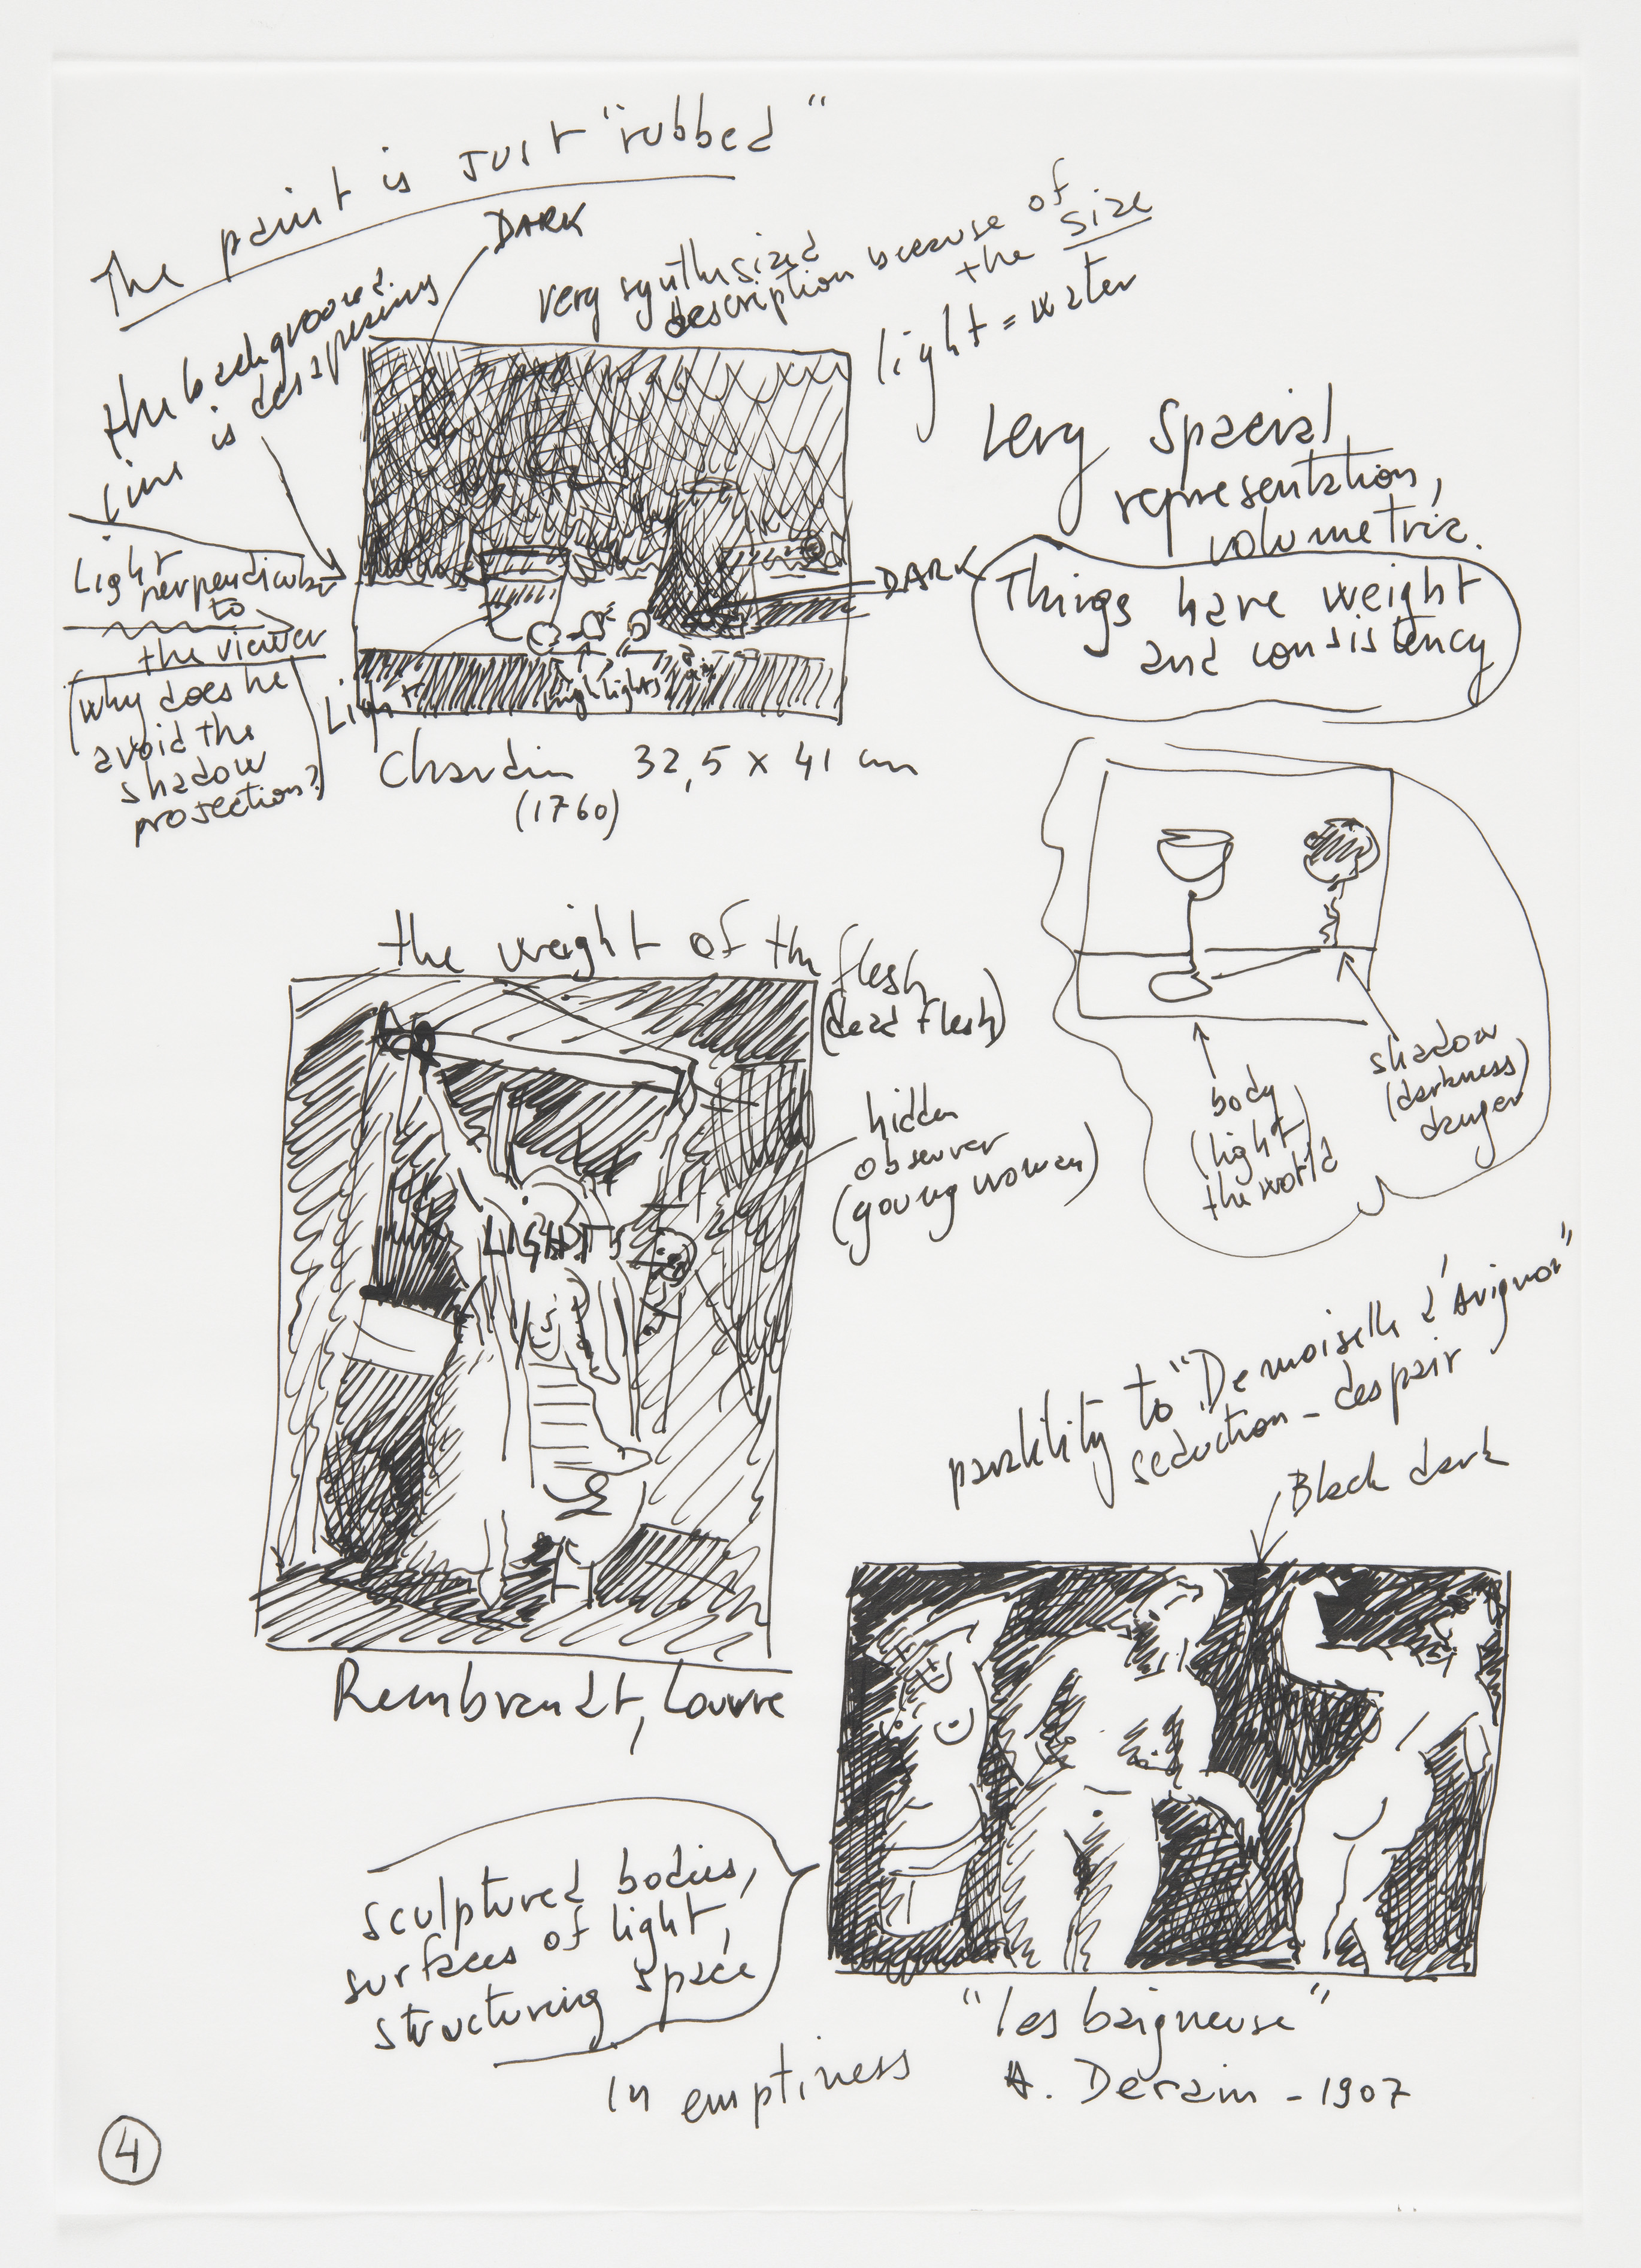 The paint is just "rubbed"
DARK
very synthesized
description because of
the size
light = water
the background
line is desapearing
Light
perpendicular
to
the viewer
(why does he
avoid the
shadow
projection?)
Light
highlights
DARK
Chardin 32,5 x 41 cm
(1760)
Very Spacial
representation,
volumetric.
Things have weight
and consistency
body
(light)
the world
shadow
(darkness)
danger
the weight of the flesh
(dead flesh)
hidden
observer
(young woman)
LIGHT
Rembrandt, Louvre
to "Demoiselle d'Avignon"
seduction - despair
Black dark
sculptured bodies,
surfaces of light,
structuring space
in emptiness
"les baigneuse"
A. Derain - 1907
4